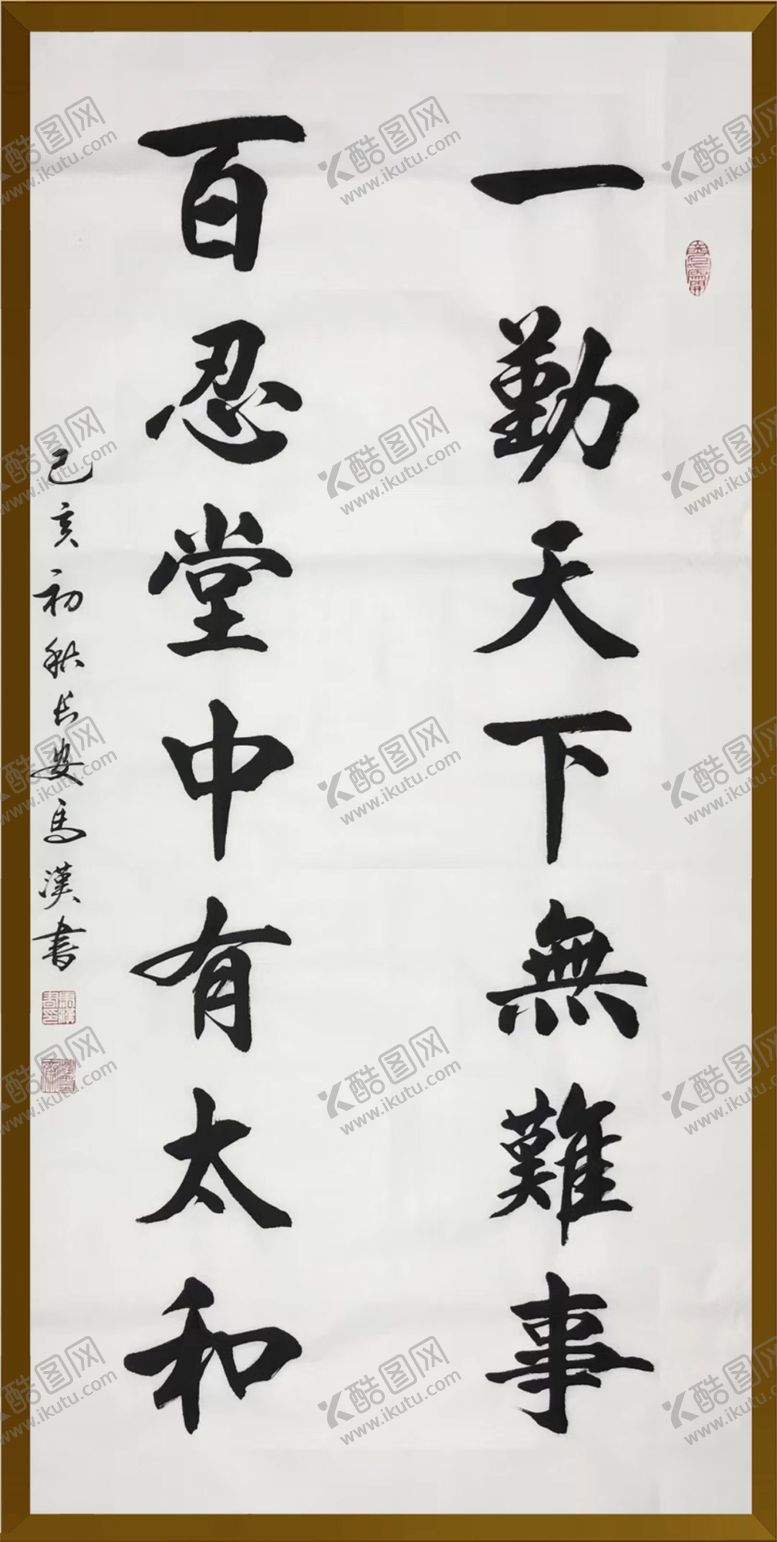 一勤天下無難事
百忍堂中有太和
己亥初秋长安馬漢书
酷图网
www.ikutu.com